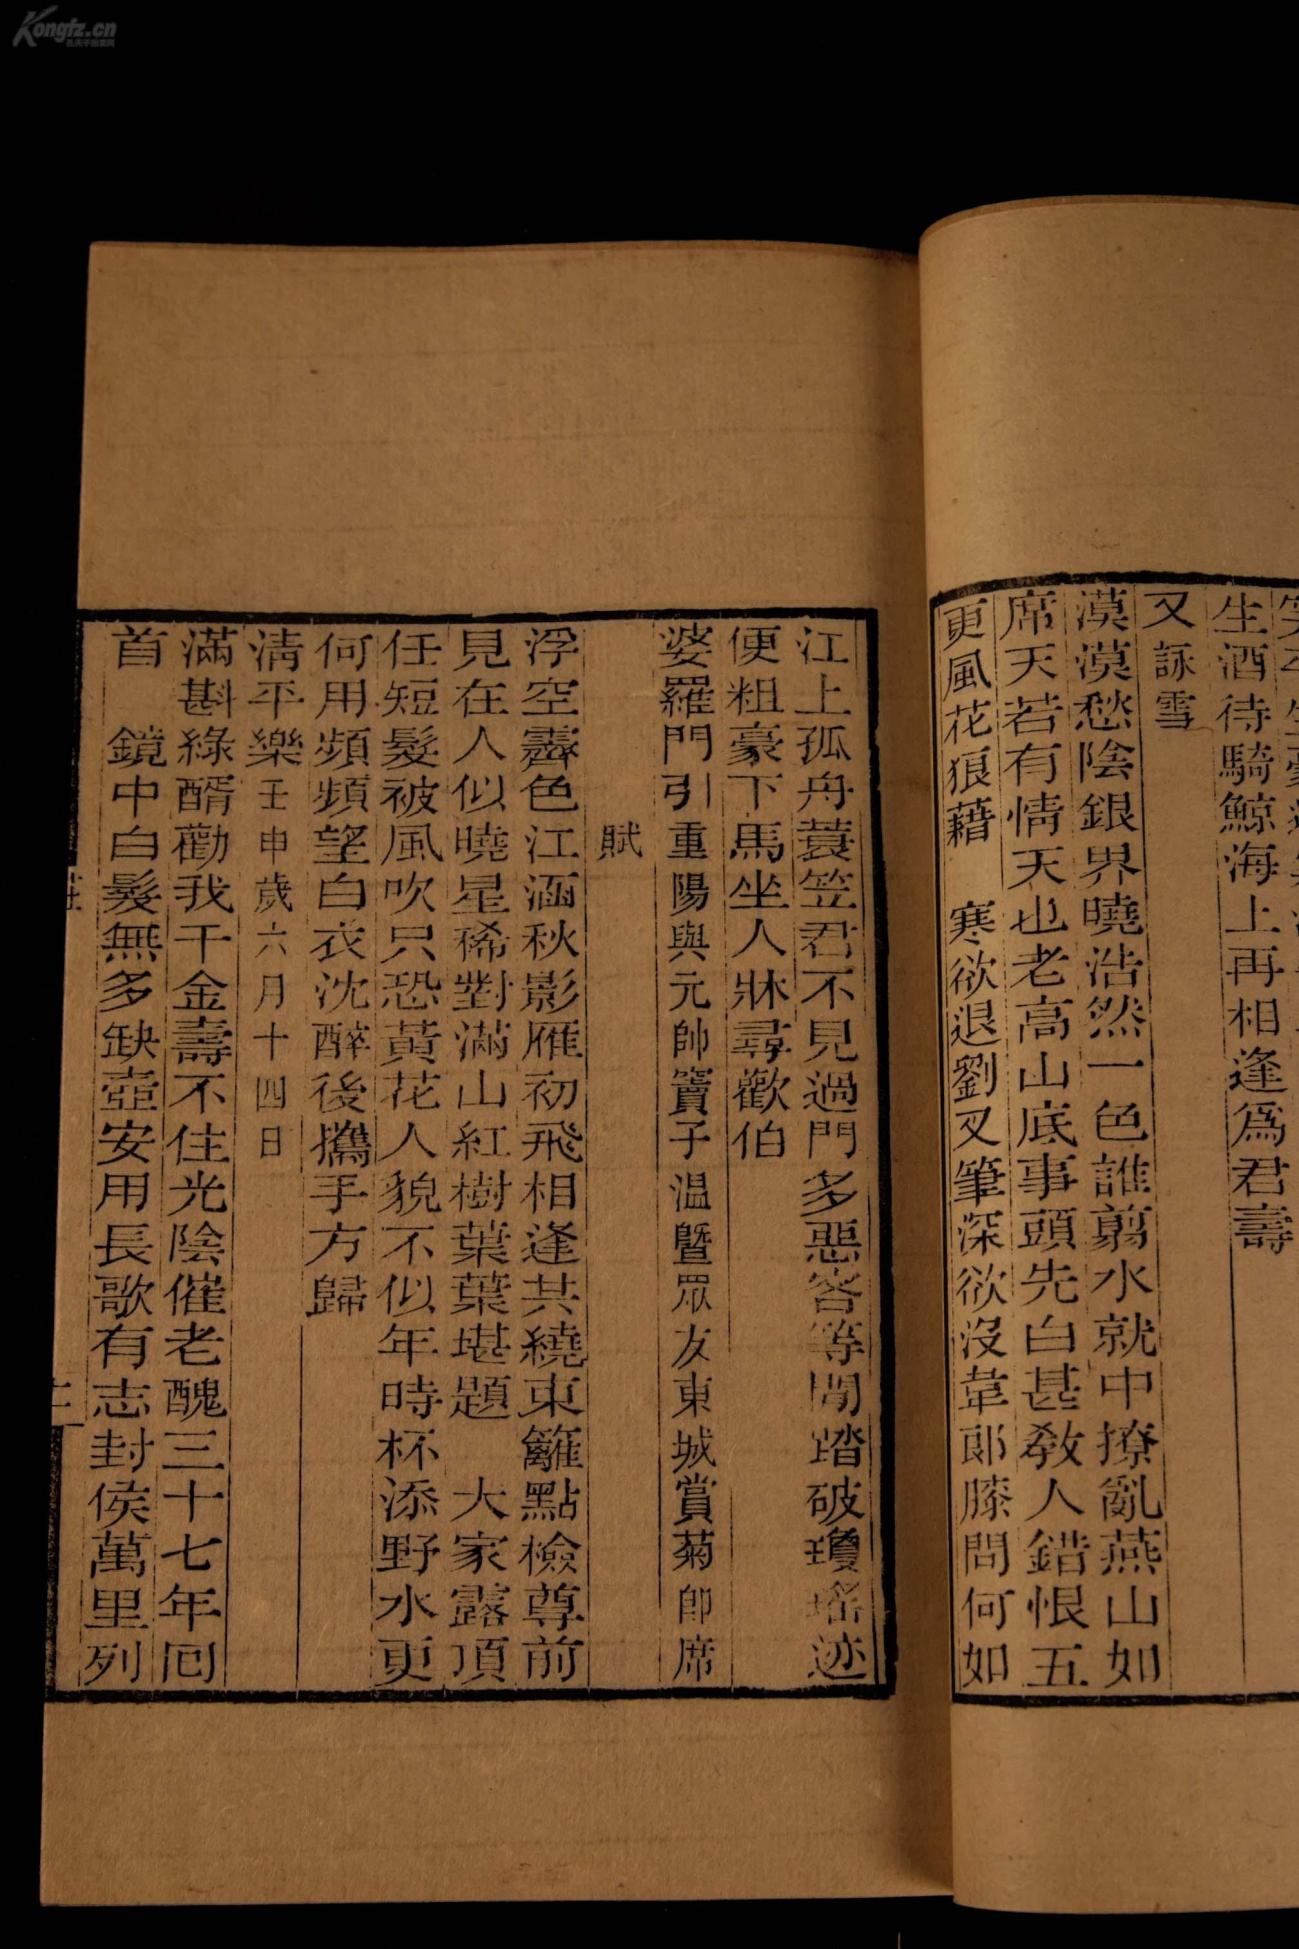 生酒待騎鯨海上再相逢爲君壽
又詠雪
漠漠愁陰銀界曉浩然一色誰翦水就中撩亂燕山如
席天若有情天也老高山底事頭先白甚教人錯恨五
更風花狼藉　寒欲退劉叉筆深欲沒韋郎膝問何如
江上孤舟蓑笠君不見過門多惡客等閒踏破瓊瑤迹
便粗豪下馬坐人牀尋歡伯
婆羅門引重陽與元帥竇子温暨眾友東城賞菊卽席
賦
浮空霽色江涵秋影雁初飛相逢共繞東籬點檢尊前
見在人似曉星稀對滿山紅樹葉葉堪題　大家露頂
任短髮被風吹只恐黃花人貌不似年時杯添野水更
何用頻頻望白衣沈醉後攜手方歸
淸平樂壬申歲六月十四日
滿斟綠醑勸我千金壽不住光陰催老醜三十七年回
首　鏡中白髮無多缺壺安用長歌有志封侯萬里列
Kongfz.cn